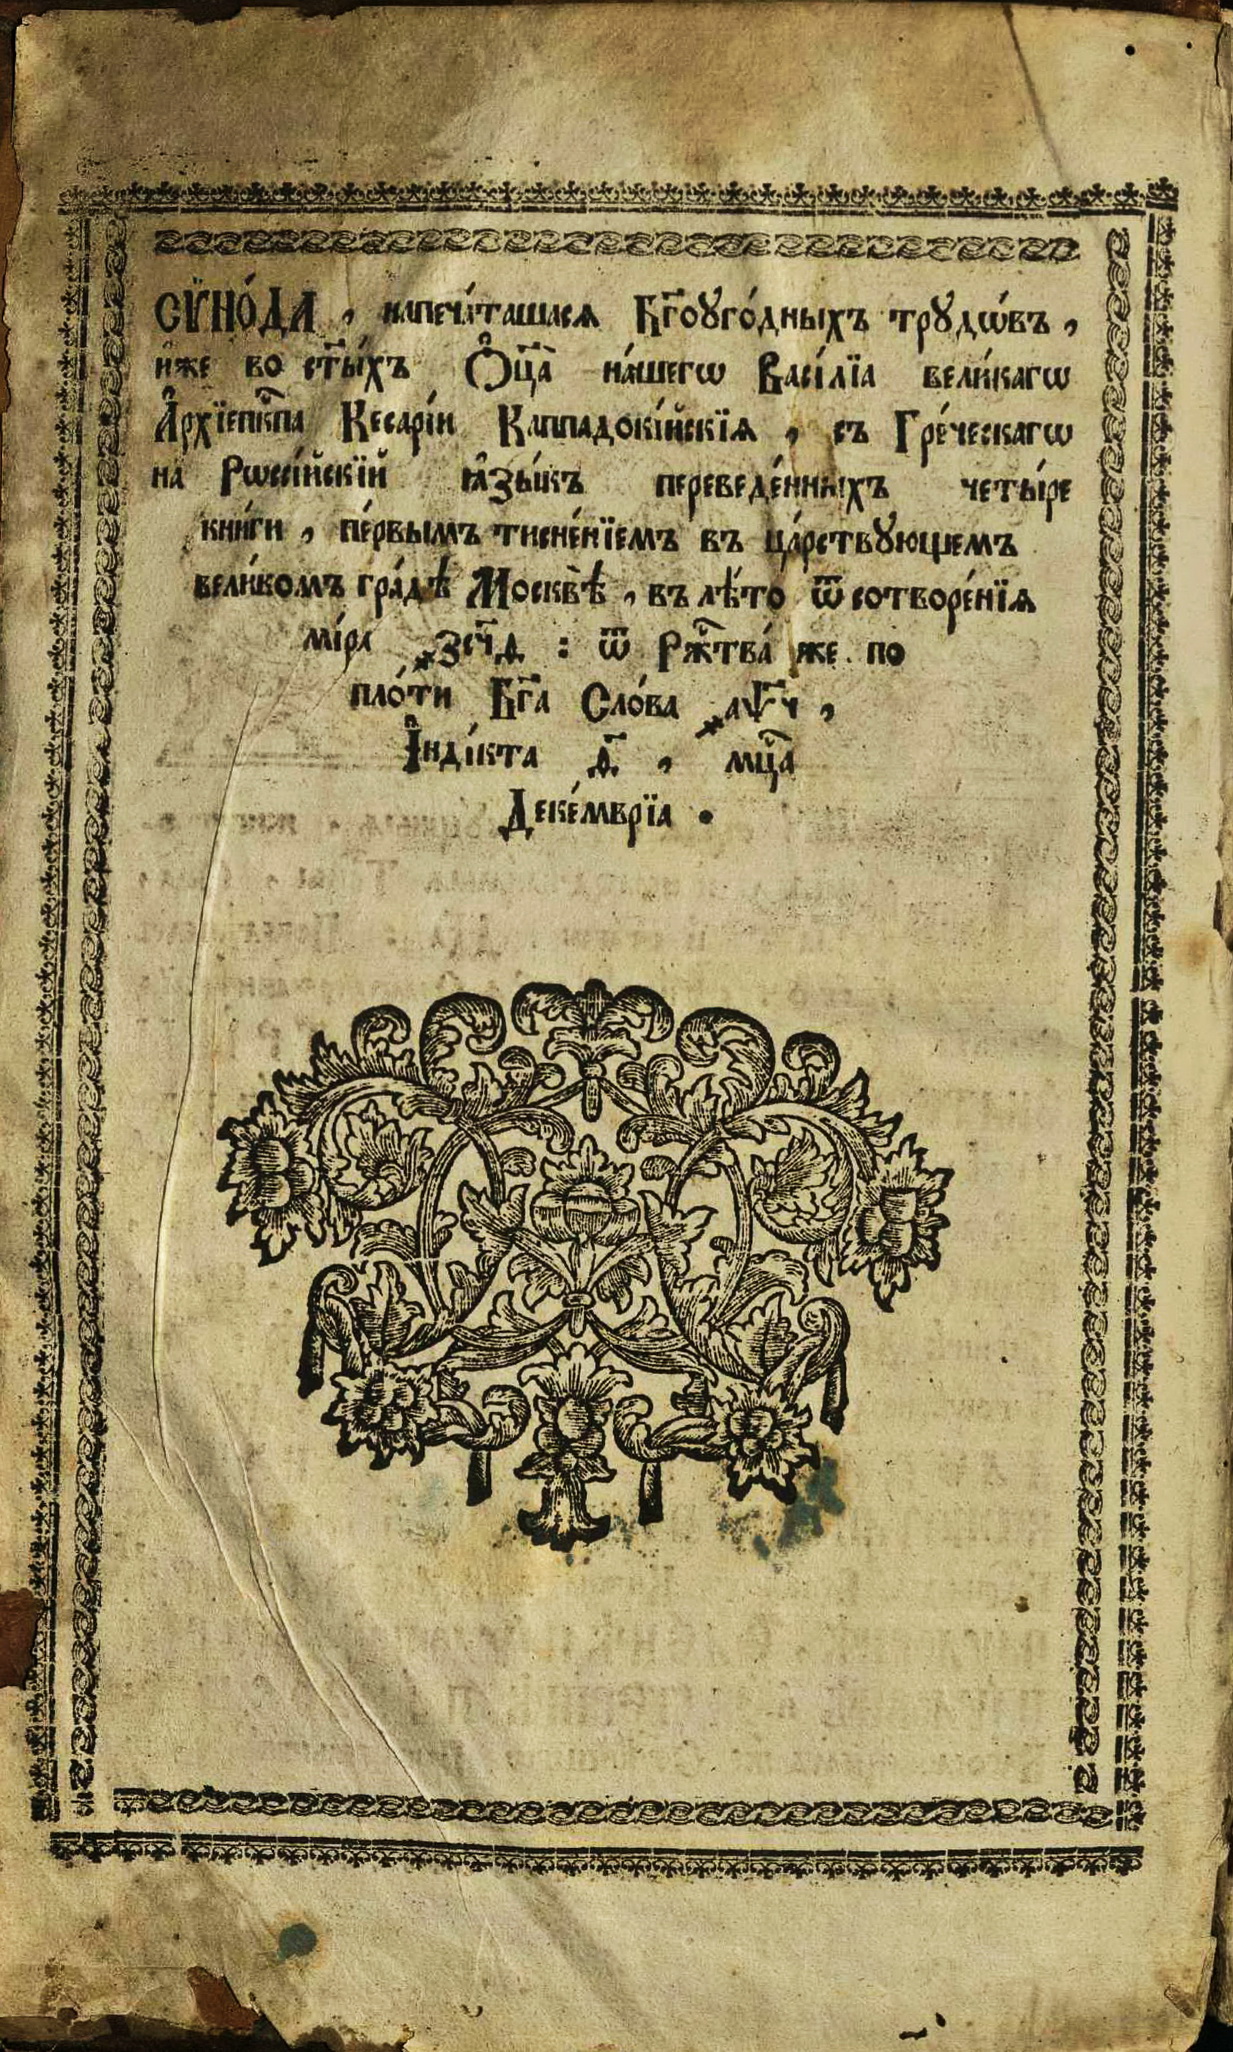 СѴНО́ДА , напеча́ташася Бг҃оуго́дныхъ трꙋдѡ́въ ,
и҆́же во ст҃ы́хъ Ѻ҆ц҃а̀ на́шегѡ Васі́лїа вели́кагѡ
А҆рхїепⷭ҇кпа Кесарі́и Каппадокі́йскїѧ , съ Гре́ческагѡ
на Рѡссі́йскїй ꙗ҆зы́къ переведе́нныхъ четы́ре
кни́ги , пе́рвымъ тисне́нїемъ въ ца́рствꙋющемъ
вели́комъ гра́дѣ Москвѣ̀ , въ лѣ́то ѿ сотворе́нїѧ
мі́ра ҂зсч҃д : ѿ Рж҇тва́ же по
пло́ти Бг҃а Сло́ва ҂аѱ҃ч ,
І҆нді́кта д҃ , мц҇а
Деке́мврїа .